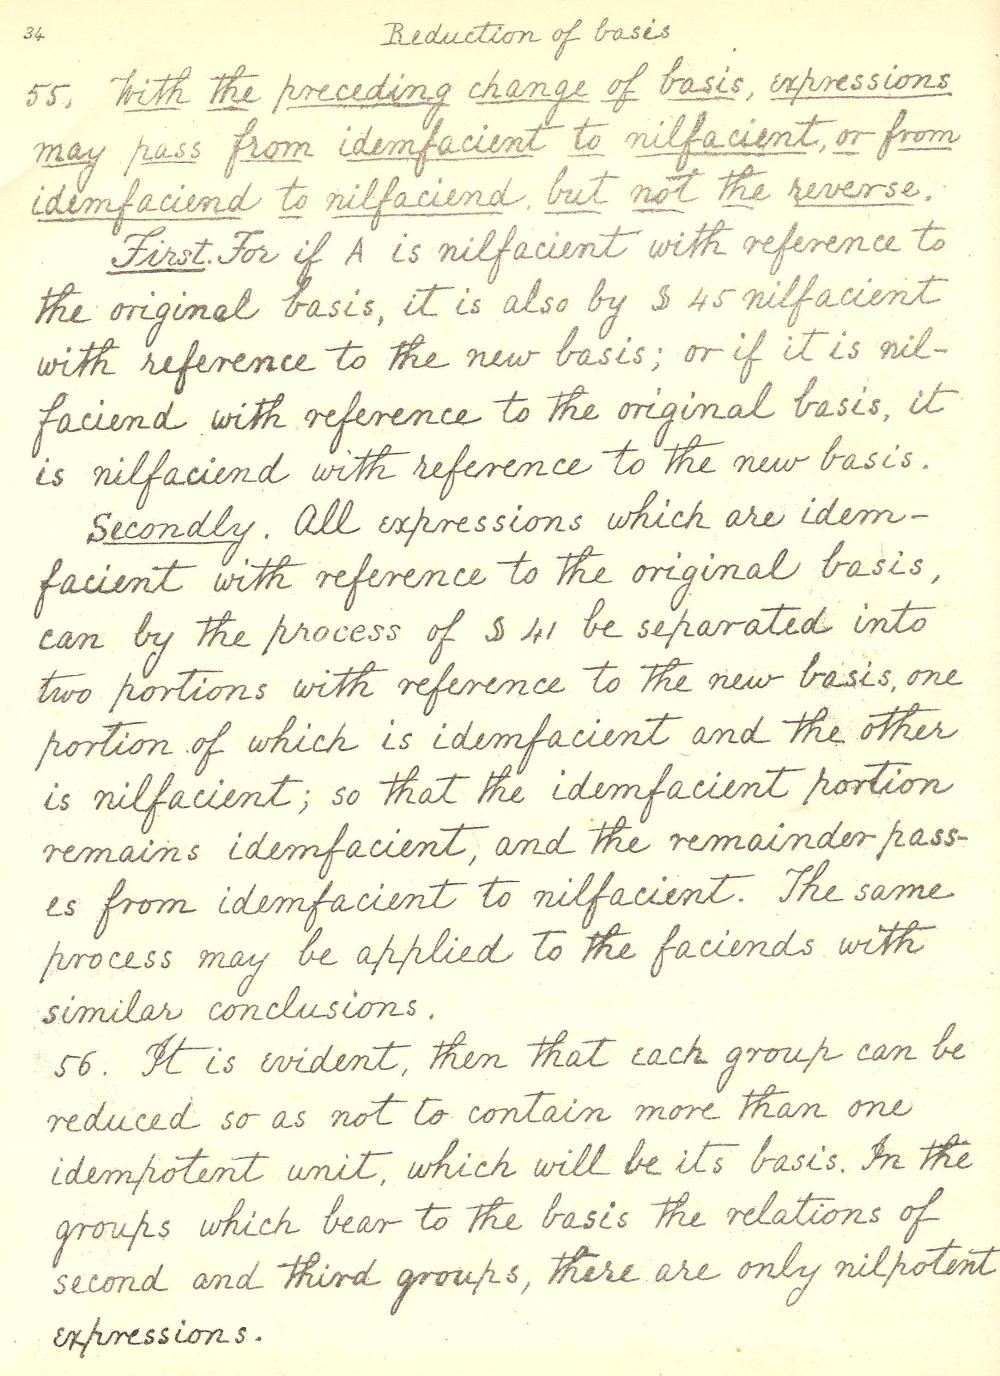 34
Reduction of basis
55. With the preceding change of basis, expressions
may pass from idemfacient to nilfacient, or from
idemfaciend to nilfaciend, but not the reverse.
First. For if A is nilfacient with reference to
the original basis, it is also by § 45 nilfacient
with reference to the new basis; or if it is nil-
faciend with reference to the original basis, it
is nilfaciend with reference to the new basis.
Secondly. All expressions which are idem-
facient with reference to the original basis,
can by the process of § 41 be separated into
two portions with reference to the new basis, one
portion of which is idemfacient and the other
is nilfacient; so that the idemfacient portion
remains idemfacient, and the remainder pass-
es from idemfacient to nilfacient. The same
process may be applied to the faciends with
similar conclusions.
56. It is evident, then that each group can be
reduced so as not to contain more than one
idempotent unit, which will be its basis. In the
groups which bear to the basis the relations of
second and third groups, there are only nilpotent
expressions.